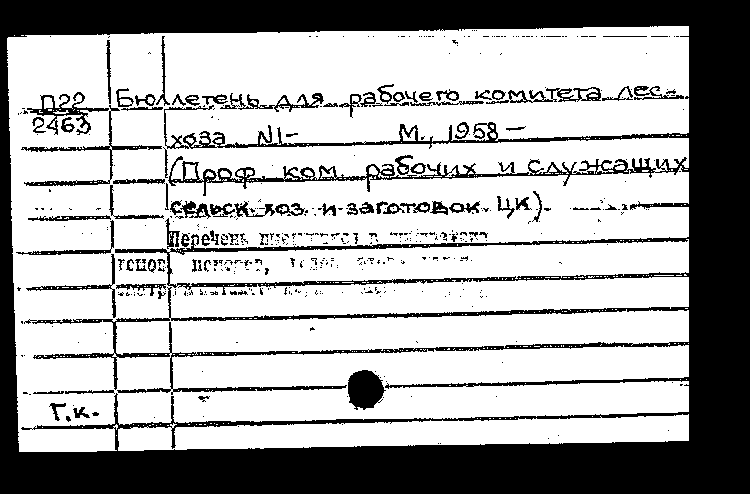 П22 Бюллетень для рабочего комитета лес-
2463 хоза N1- М., 1958 –
(Проф. ком. рабочих и служащих
сельск. хоз. и заготовок ЦК).
Перечень
Г.к.